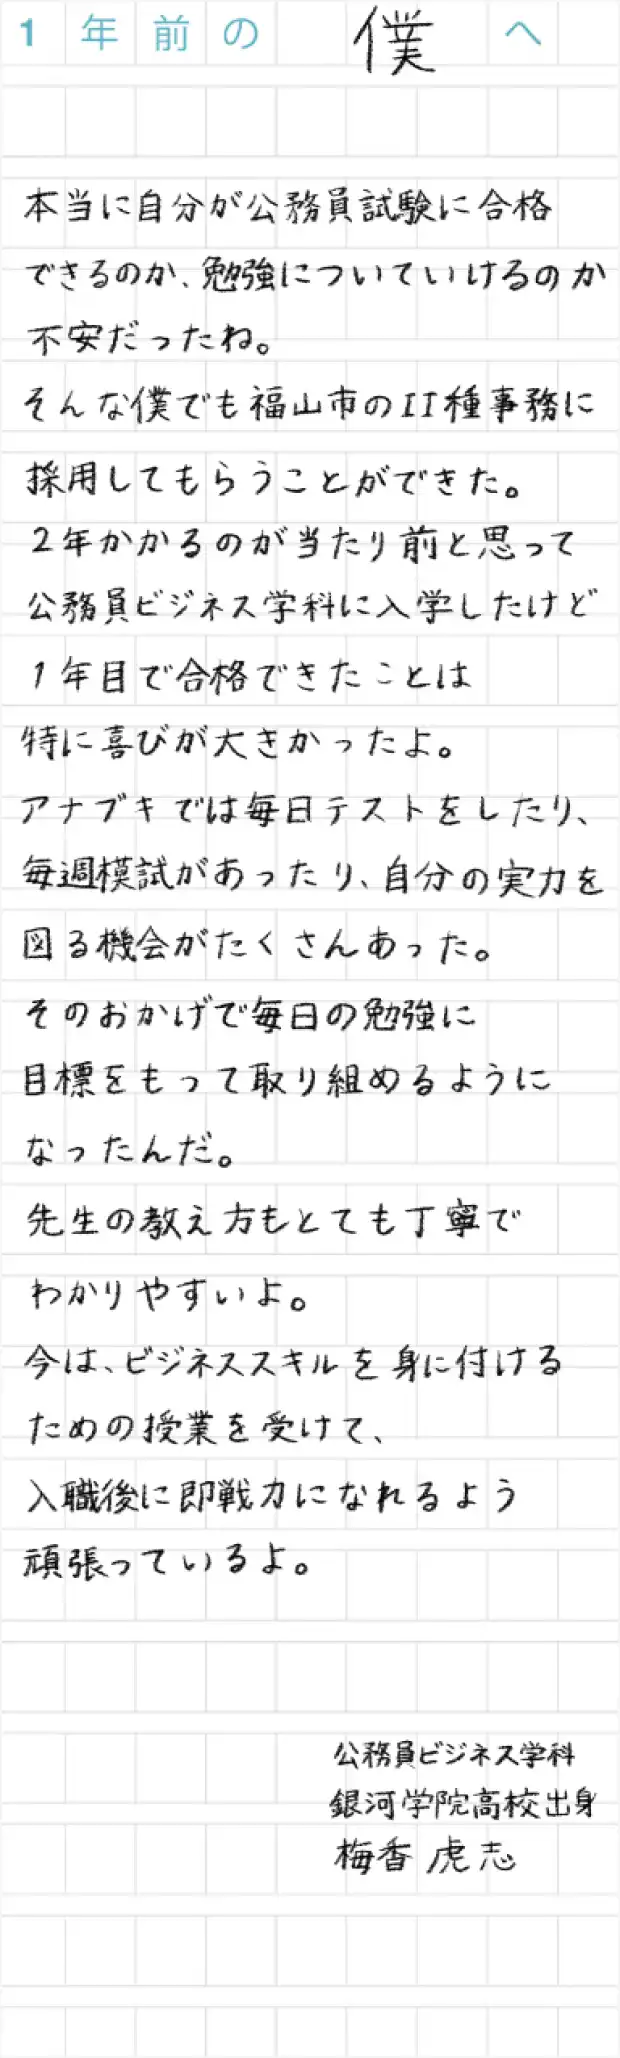 1年前の僕へ
本当に自分が公務員試験に合格
できるのか、勉強についていけるのか
不安だったね。
そんな僕でも福山市のII種事務に
採用してもらうことができた。
2年かかるのが当たり前と思って
公務員ビジネス学科に入学したけど
1年目で合格できたことは
特に喜びが大きかったよ。
アナブキでは毎日テストをしたり、
毎週模試があったり、自分の実力を
図る機会がたくさんあった。
そのおかげで毎日の勉強に
目標をもって取り組めるように
なったんだ。
先生の教え方もとても丁寧で
わかりやすいよ。
今は、ビジネススキルを身に付ける
ための授業を受けて、
入職後に即戦力になれるよう
頑張っているよ。
公務員ビジネス学科
銀河学院高校出身
梅香 虎志